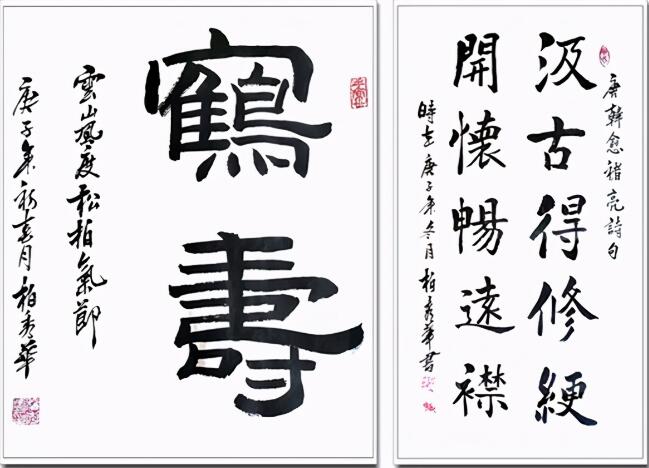 鶴壽
雲山風度松柏氣節
庚子年月柏秀華
唐韓愈褚亮詩句
汲古得修綆
開懷暢遠襟
時在庚子年冬月柏秀華書